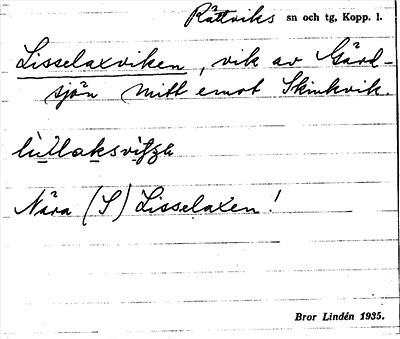 Rättviks sn och tg, Kopp. l.
Lisselaxviken, vik av Gärd-
sjön mitt emot Skinkvik.
Nära (S) Lisselaxen!
Bror Lindén 1935.